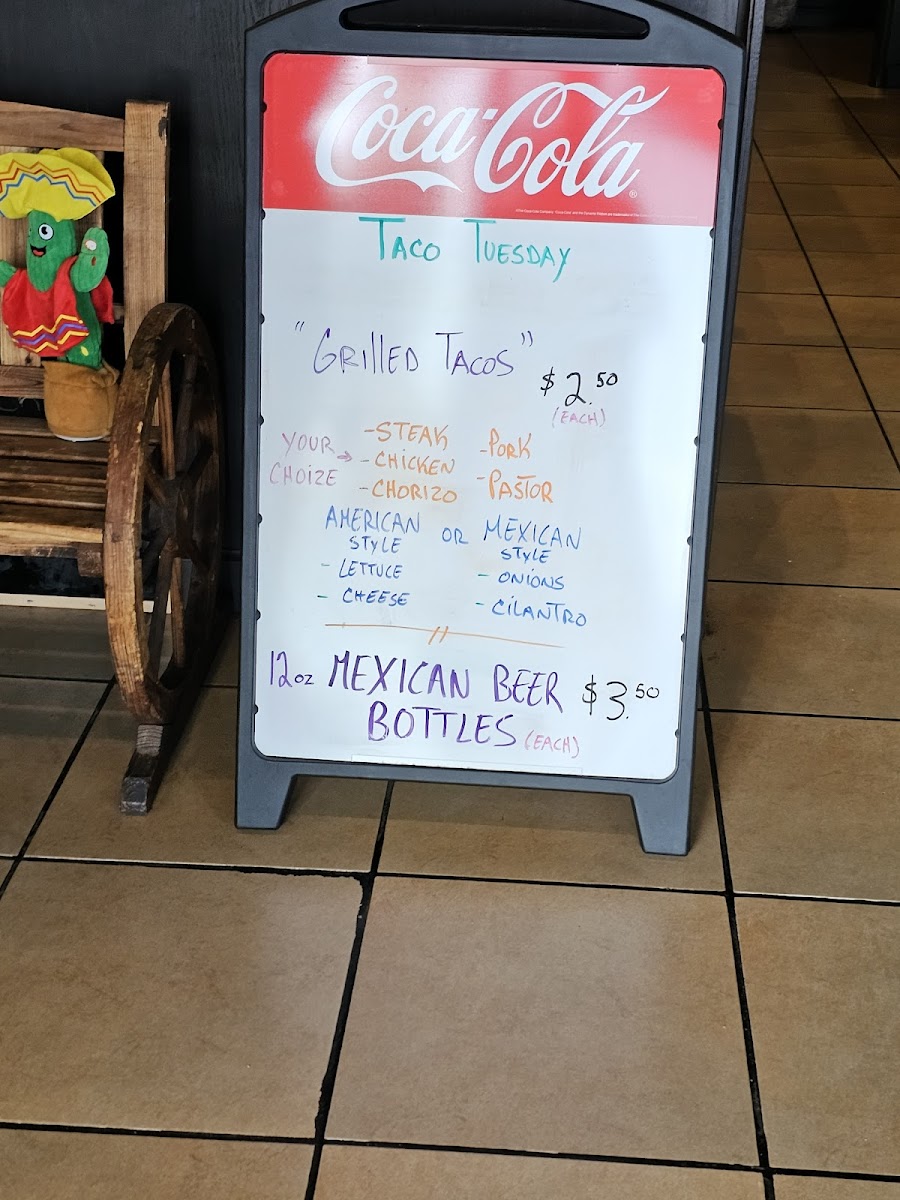 Coca-Cola®
TACO TUESDAY
"GRILLED TACOS"
$2.50
(EACH)
YOUR CHOIZE →
-STEAK
-CHICKEN
-CHORIZO
-PORK
-PASTOR
AMERICAN STYLE
- LETTUCE
- CHEESE
OR
MEXICAN STYLE
- ONIONS
- CILANTRO
12oz MEXICAN BEER $3.50
BOTTLES (EACH)